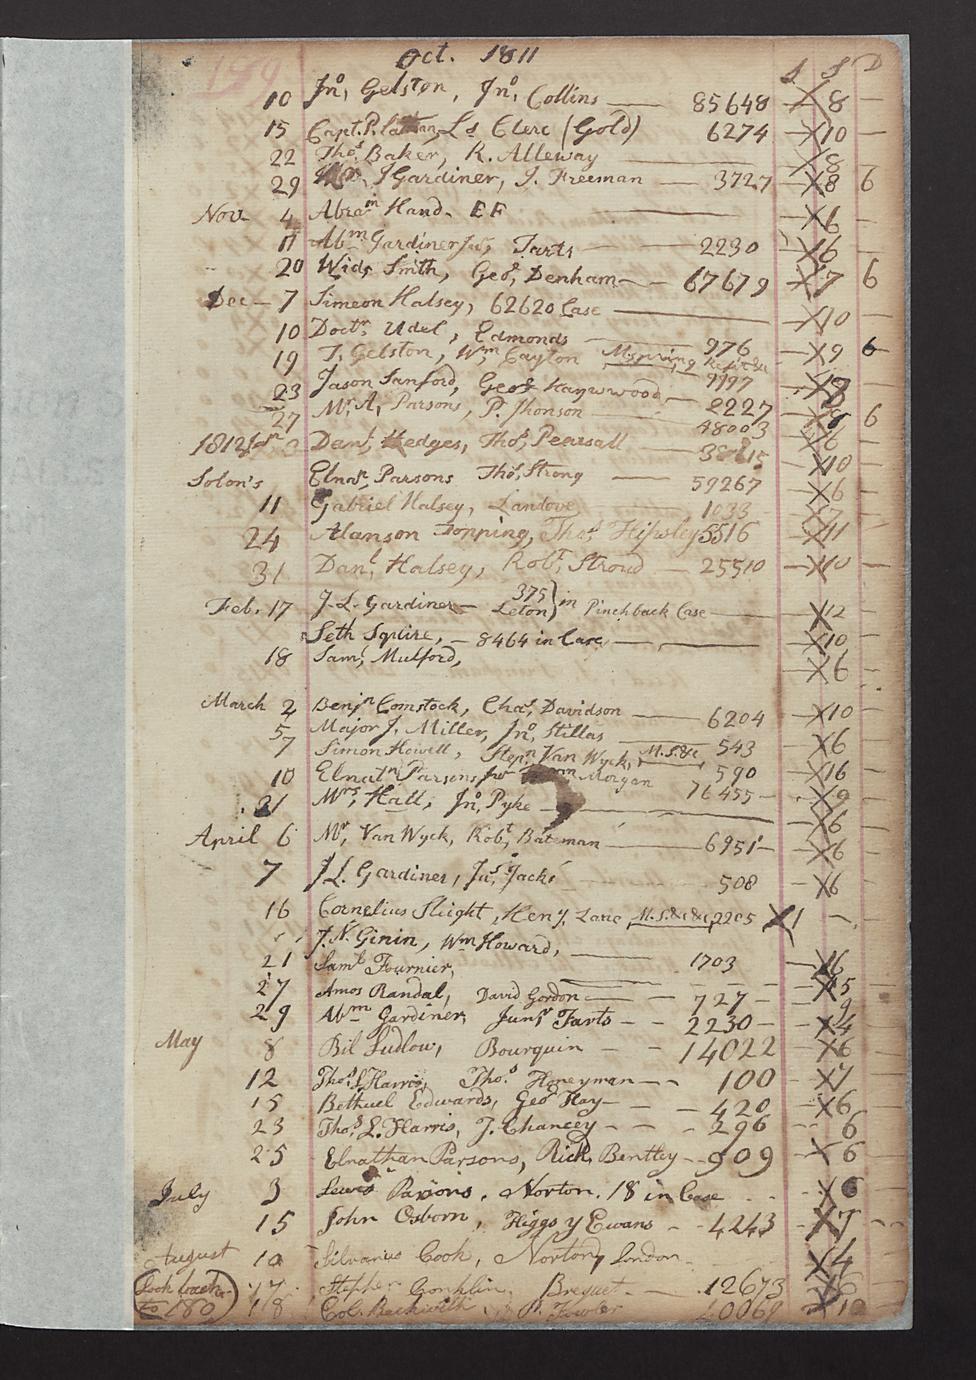 149 Oct. 1811
£ S D
10 Jno, Gelston, Jno, Collins — 85648 — X 8 —
15 Capt. P. Ls Clerc (Gold) 6274 — X 10 —
22 Thos. Baker, R. Alleway — X 8
29 J Gardiner, J. Freeman — 3727 — X 8 6
Nov. 4 Abram Hand. EF — X 6
11 Abm Gardiner Jur, Tarts — 2230 X 6 —
20 Wido Smith, Geo, Denham — 67679 X 7 6
Dec — 7 Simeon Halsey, 62620 Case — X 10 —
10 Doctr. Udel, Edmonds — 976 — X 9 6
19 J. Gelston, Wm Cayton Mspring 9197
23 Jason Sanford, Geo Haywood, 2227
27 Mr. A, Parsons, P. Jhonson — 48003 X 8 6
1812 Danl, Hedges, Thos, Pearsall X 6 —
Solon's Elnan, Parsons Thos, Strong — 59267 X 10
11 Gabriel Halsey, Landove, 1033 X 6
24 Alanson Topping, Thos Hipsley 5516 X 11
31 Danl, Halsey, Robt, Stroud — 25510 — X 10 —
Feb. 17 J. L. Gardiner — 375 Leton) in Pinchback Case — X 12
Seth Squire, — 8464 in Case, — X 10 —
18 Saml, Mulford, X 6 —
March 2 Benjn Comstock, Chas, Davidson — 6204 — X 10 —
5 Major J. Miller, Jno, Stillas — 543 X 6
7 Simon Howell, Stepn Van Wyck, M. S. &c 590 X 16
10 Elnatn Parsons Jur Morgan 76455 — X 9
21 Mrs, Hall, Jno, Pyke — X 6
April 6 Mr, Van Wyck, Robt, Bateman — 6951 — X 6 —
7 J L. Gardiner, Jas, Jacks 508 — X 6
16 Cornelius Sleight, Heny, Lane, M. S. &c &c, 2205 X 1 —
J. N. Ginin, Wm Howard, — 1703 — X 6
21 Saml Fournier, X 5
27 Amos Randal, David Gordon — 727 — 9
29 Abm Gardiner, Junr Tarts — 2230 — X 4
May 8 Bil Ludlow, Bourquin — 14022 — X 6 —
12 Thos. L Harris, Thos. Honeyman — 100 — X 7
15 Bethuel Edwards, Geo Hay — 420 — X 6
23 Thos. L. Harris, J. Chancey — 296 — 6
25 Elnathan Parsons, Rich, Bentley — 909 — X 6
July 3 Lewis Parsons. Norton. 18 in Case X 6
15 John Osborn, Higgs y Ewans — 4243 — X 7 —
August 10 Silvanus Cook, Norton, London X 4
Look back 17 Stephen Conklin, Breguet — 12673 X 6
to 180) 18 Col. Beckwith P. Fowler X 10